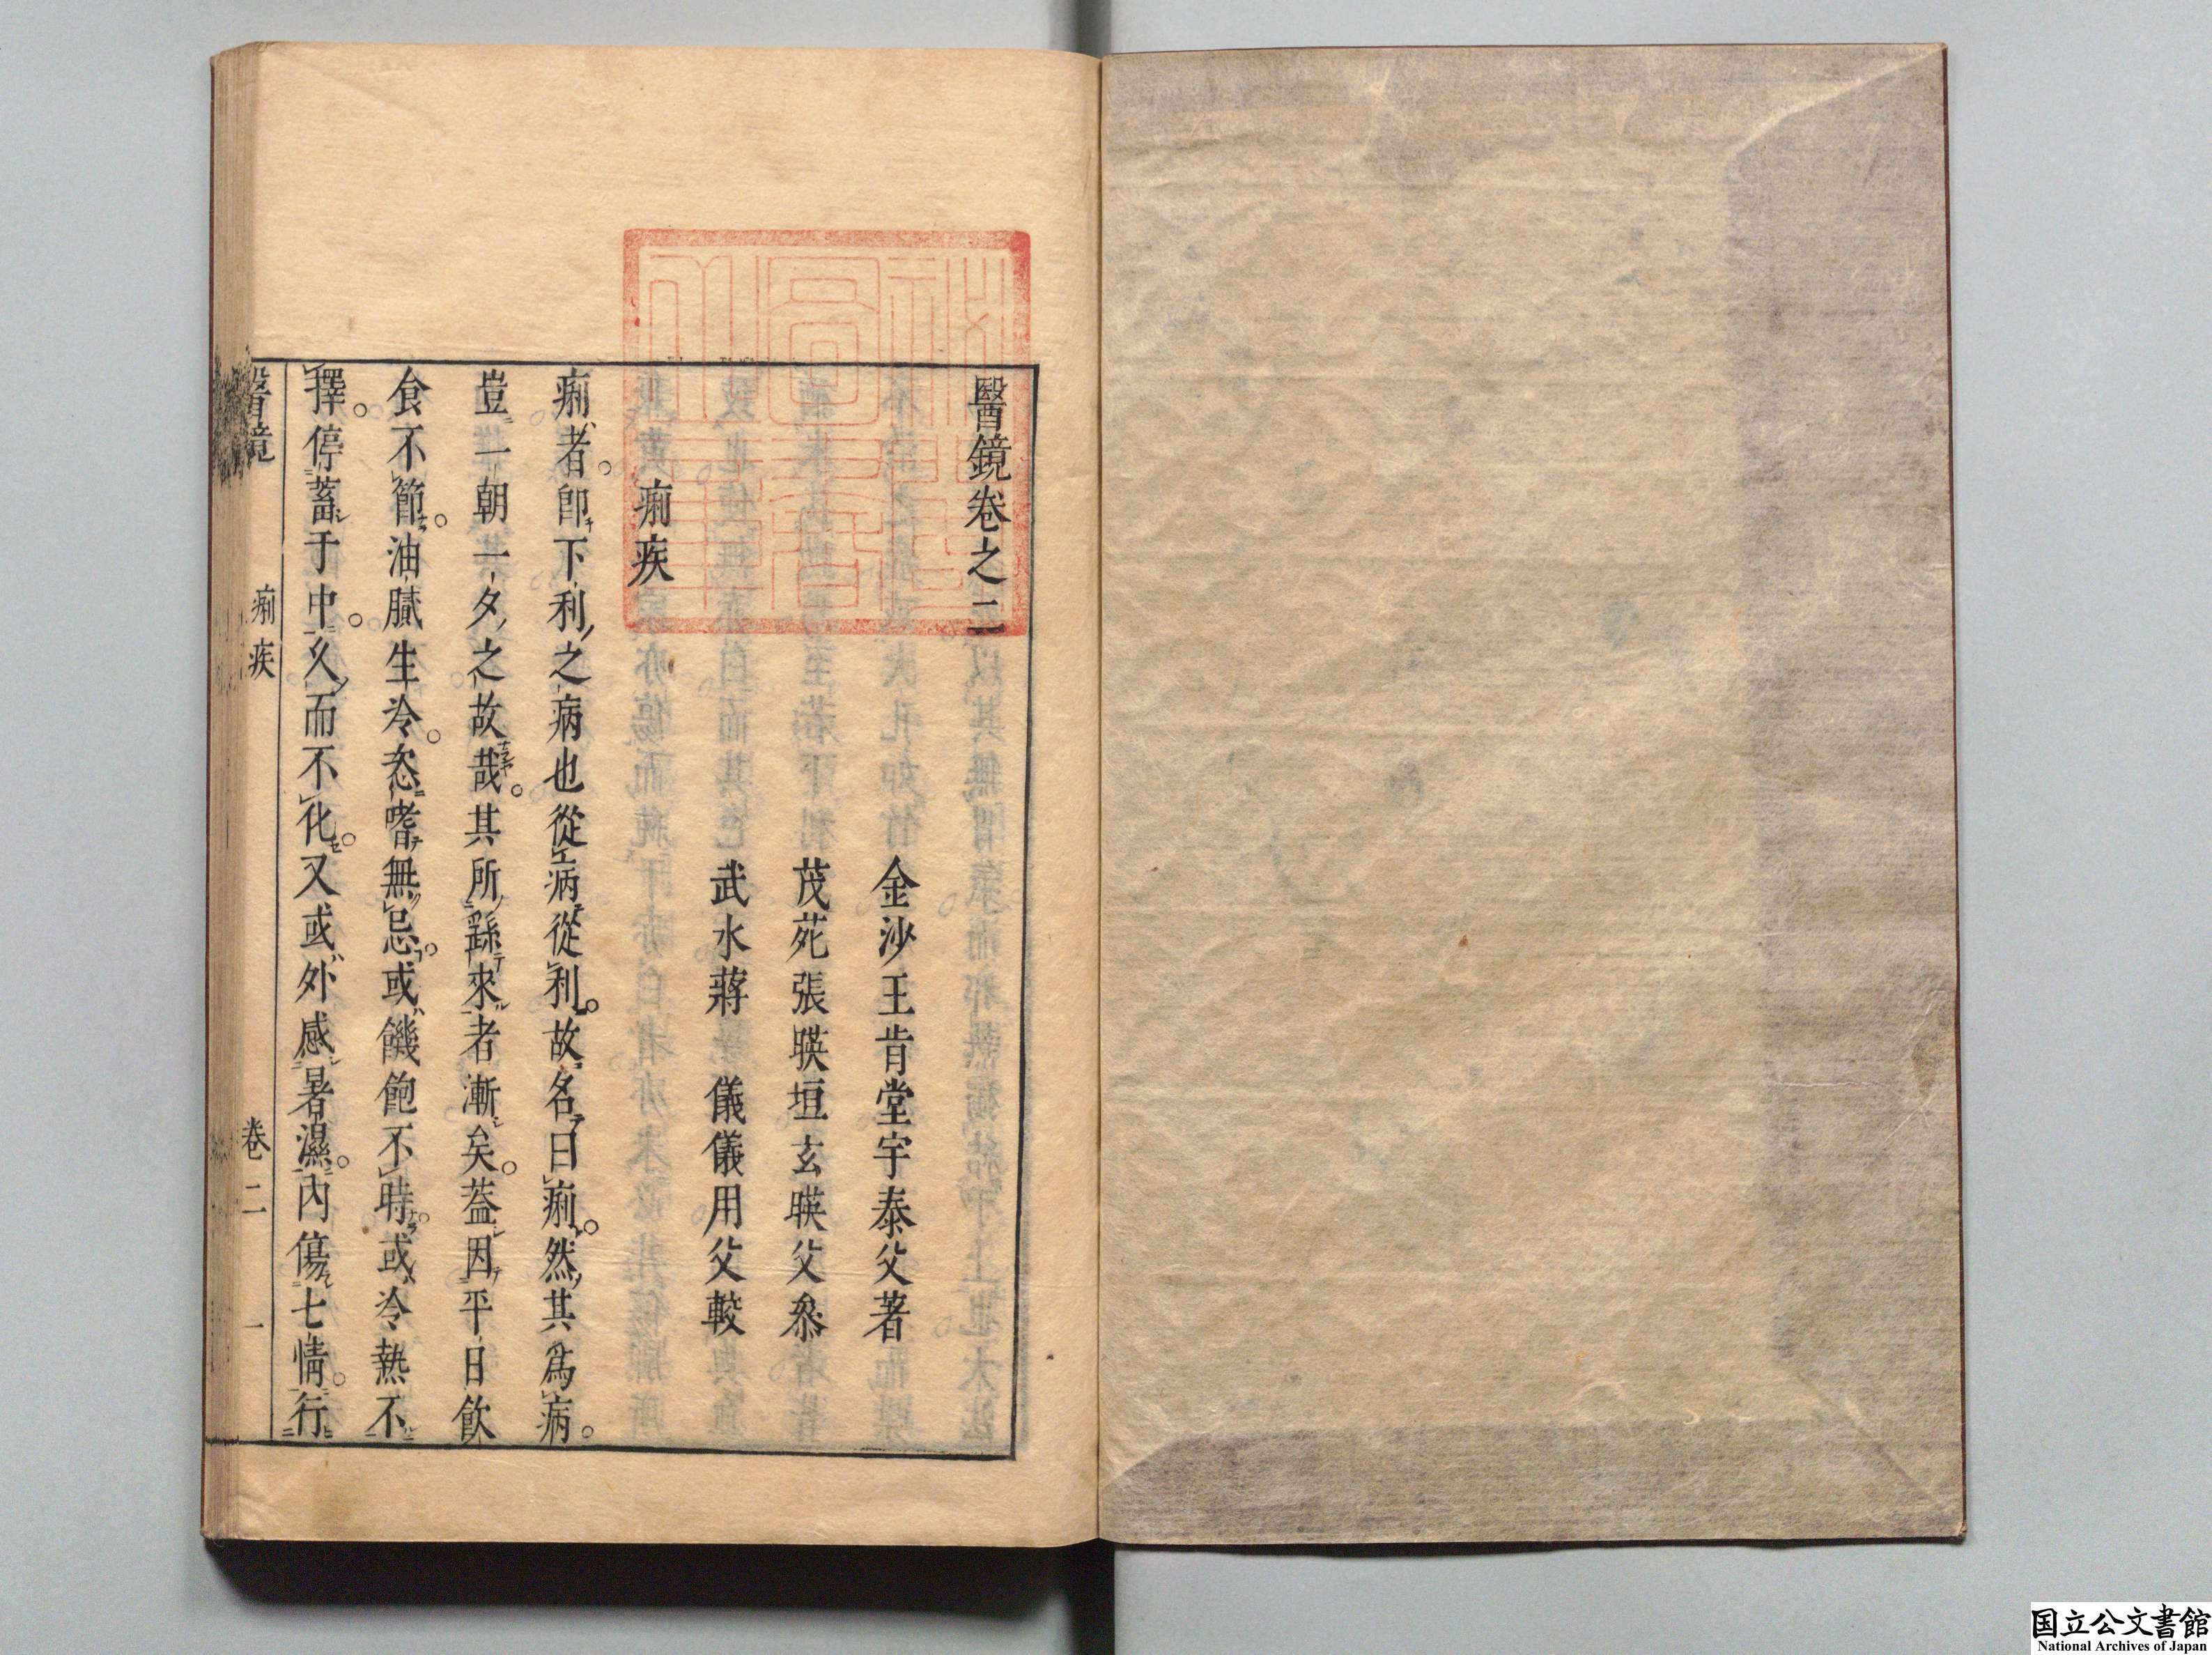 醫鏡卷之二
金沙王肯堂宇泰父著
茂苑張暎垣玄暎父叅
武水蔣 儀儀用父較
痢疾
痢者。卽下利之病也從病從利。故名曰痢。然其爲病。
豈一朝一夕之故哉。其所繇來者漸矣。葢因平日飮
食不節。油膩生冷。恣嗜無忌。或饑飽不時。或冷熱不
擇。停蓄于中。久而不化。又或外感暑濕。内傷七情。行
醫鏡 痢疾 卷二 一
国立公文書館
National Archives of Japan